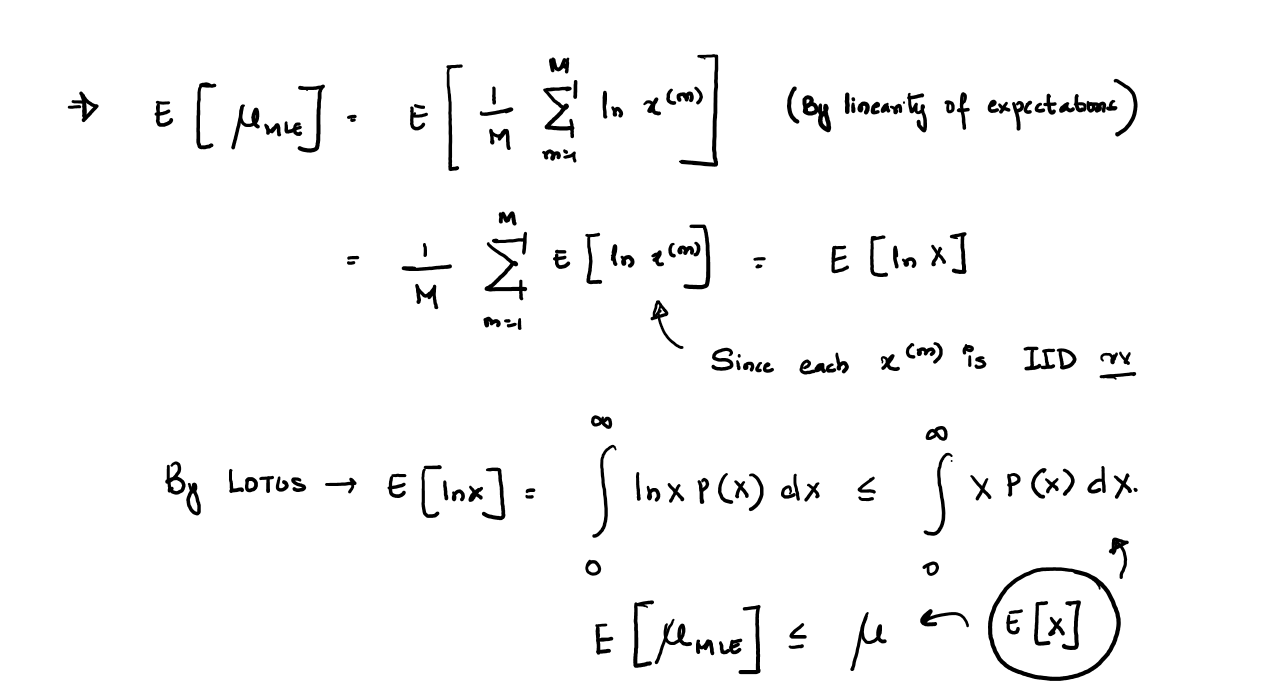 ⇒ E [ μ_MLE ] = E [ 1/M Σ_{m=1}^{M} ln x^(m) ] (By linearity of expectations)
= 1/M Σ_{m=1}^{M} E [ ln x^(m) ] = E [ln X]
Since each x^(m) is IID rv
By LOTUS → E [lnx] = ∫_0^∞ lnx P(x) dx ≤ ∫_0^∞ x P(x) dx.
E [ μ_MLE ] ≤ μ ← E[x]